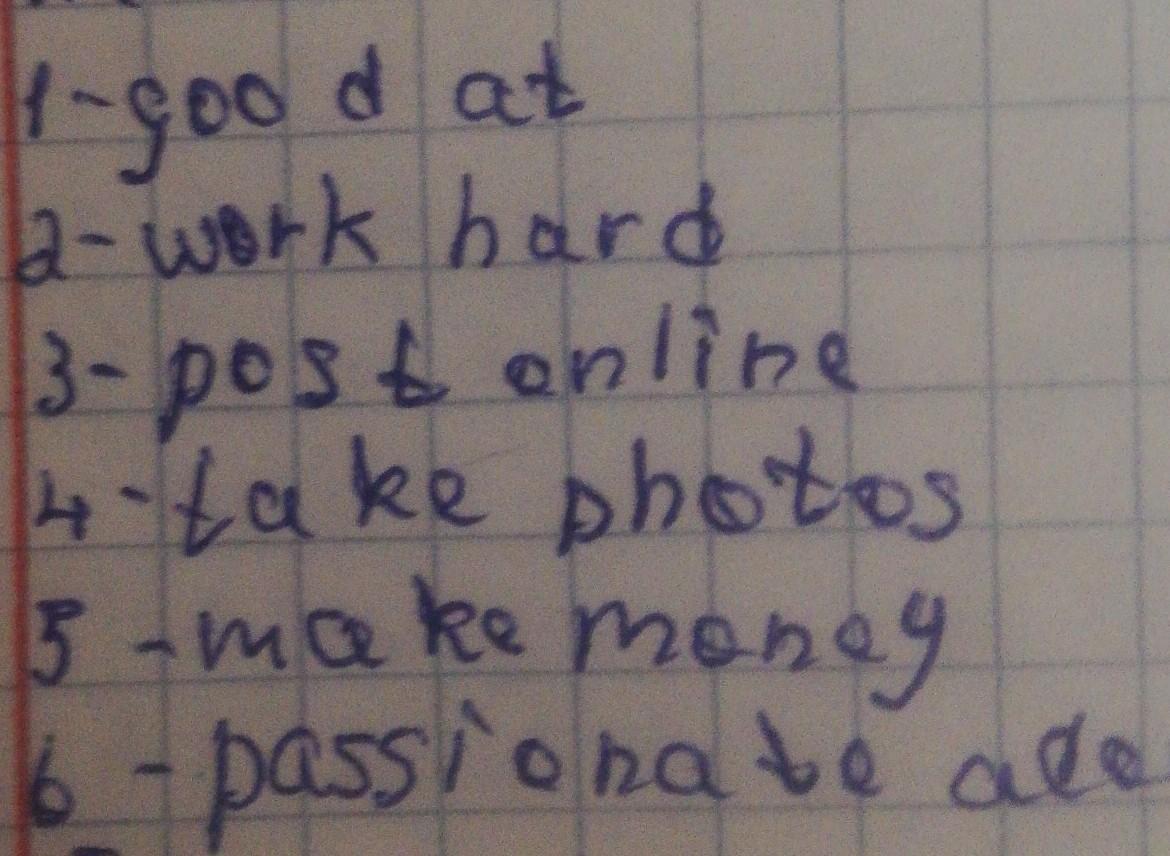 1-good at
2-work hard
3-post online
4-take photos
5-make money
6-passionate